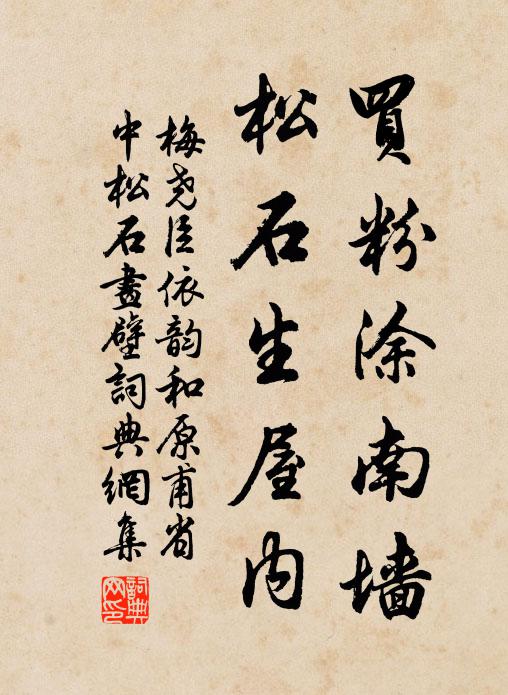 買粉涂南墙
松石生屋内
梅尧臣依韵和原甫省
中松石畫壁詞典網集
詞典网印